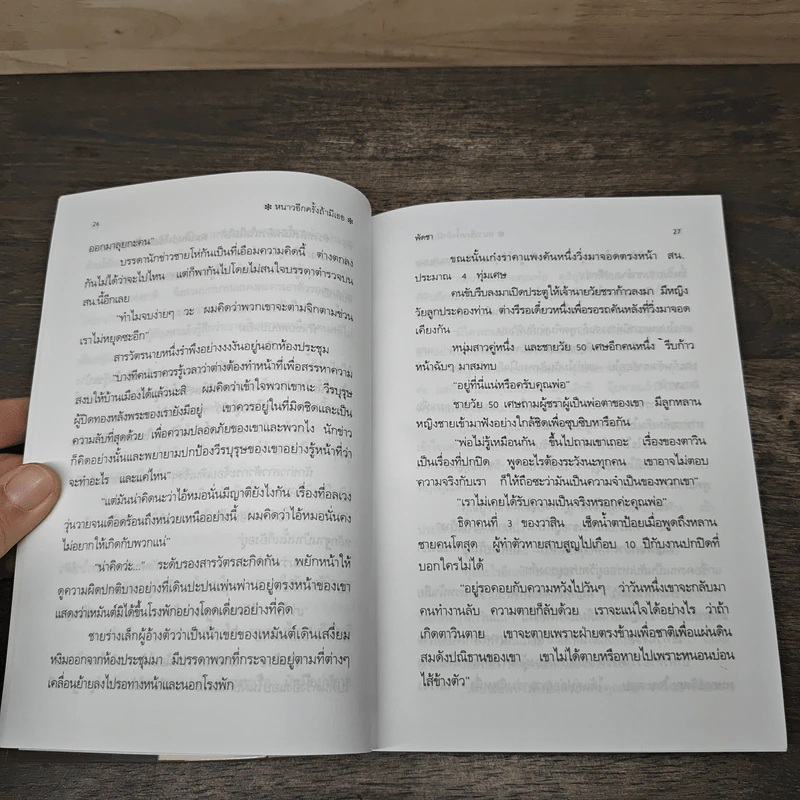 26
✻ หนาวอีกครั้งถ้ามีเธอ ✻
ออกมาลุยกะตน"
บรรดานักข่าวชายโห่กันเป็นที่เอือมความคิดนี้ ต่างตกลง
กันไม่ได้ว่าจะไปไหน แต่ก็พากันไปโดยไม่สนใจบรรดาตำรวจบน
สน.นี้อีกเลย
"ทำไมจบง่ายๆ วะ ผมคิดว่าพวกเขาจะตามจิกตามช่วน
เราไม่หยุดซะอีก"
สารวัตรนายหนึ่งรำพึงอย่างงงงันอยู่นอกห้องประชุม
"บางทีคนเราควรรู้เวลาว่าต่างต้องทำหน้าที่เพื่อสรรหาความ
สงบให้บ้านเมืองได้แล้วนะสิ ผมคิดว่าเข้าใจพวกเขานะ วีรบุรุษ
ผู้ปิดทองหลังพระของเรายังมีอยู่ เขาควรอยู่ในที่มิดชิดและเป็น
ความลับที่สุดด้วย เพื่อความปลอดภัยของเขาและพวกไง นักข่าว
ก็คิดอย่างนั้นและพยายามปกป้องวีรบุรุษของเขาอย่างรู้หน้าที่ว่า
จะทำอะไร และแค่ไหน"
"แต่มันน่าคิดนะว่าไอ้หมอนั่นมีญาติยังไงกัน เรื่องที่อลเวง
วุ่นวายจนเดือดร้อนถึงหน่วยเหนืออย่างนี้ ผมคิดว่าไอ้หมอนั่นคง
ไม่อยากให้เกิดกับพวกแน่"
"น่าคิดว่ะ..." ระดับรองสารวัตรสะกิดกัน พยักหน้าให้
ดูความผิดปกติบางอย่างที่เดินปะปนเพ่นพ่านอยู่ตรงหน้าของเขา
แสดงว่าเหมันต์มิได้ขึ้นโรงพักอย่างโดดเดี่ยวอย่างที่คิด
ชายร่างเล็กผู้อ้างตัวว่าเป็นน้าเขยของเหมันต์เดินเสงี่ยม
หงิมออกจากห้องประชุมมา มีบรรดาพวกที่กระจายอยู่ตามที่ต่างๆ
เคลื่อนย้ายลงไปรอทางหน้าและนอกโรงพัก
พัดชา
27
ขณะนั้นเก๋งราคาแพงคันหนึ่งวิ่งมาจอดตรงหน้า สน.
ประมาณ 4 ทุ่มเศษ
คนขับรีบลงมาเปิดประตูให้เจ้านายวัยชราก้าวลงมา มีหญิง
วัยลูกประคองท่าน ต่างรีรอเดี๋ยวหนึ่งเพื่อรอรถคันหลังที่วิ่งมาจอด
เคียงกัน
หนุ่มสาวคู่หนึ่ง และชายวัย 50 เศษอีกคนหนึ่ง รีบก้าว
หน้าฉับๆ มาสมทบ
"อยู่ที่นี่แน่หรือครับคุณพ่อ"
ชายวัย 50 เศษถามผู้ชราผู้เป็นพ่อตาของเขา มีลูกหลาน
หญิงชายเข้ามาฟังอย่างใกล้ชิดเพื่อซุบซิบหารือกัน
"พ่อไม่รู้เหมือนกัน ขึ้นไปถามเขาเถอะ เรื่องของตาวิน
เป็นเรื่องที่ปกปิด พูดอะไรต้องระวังนะทุกคน เขาอาจไม่ตอบ
ความจริงกับเรา ก็ให้ถือซะว่ามันเป็นความจำเป็นของพวกเขา"
"เราไม่เคยได้รับความเป็นจริงหรอกค่ะคุณพ่อ"
ธิดาคนที่ 3 ของวาสิน เช็ดน้ำตาป้อยเมื่อพูดถึงหลาน
ชายคนโตสุด ผู้ทำตัวหายสาบสูญไปเกือบ 10 ปีกับงานปกปิดที่
บอกใครไม่ได้
"อยู่รอคอยกับความหวังไปวันๆ ว่าวันหนึ่งเขาจะกลับมา
คนทำงานลับ ความตายก็ลับด้วย เราจะแน่ใจได้อย่างไร ว่าถ้า
เกิดตาวินตาย เขาจะตายเพราะฝ่ายตรงข้ามเพื่อชาติเพื่อแผ่นดิน
สมดังปณิธานของเขา เขาไม่ได้ตายหรือหายไปเพราะหนอนบ่อน
ไส้ข้างตัว"